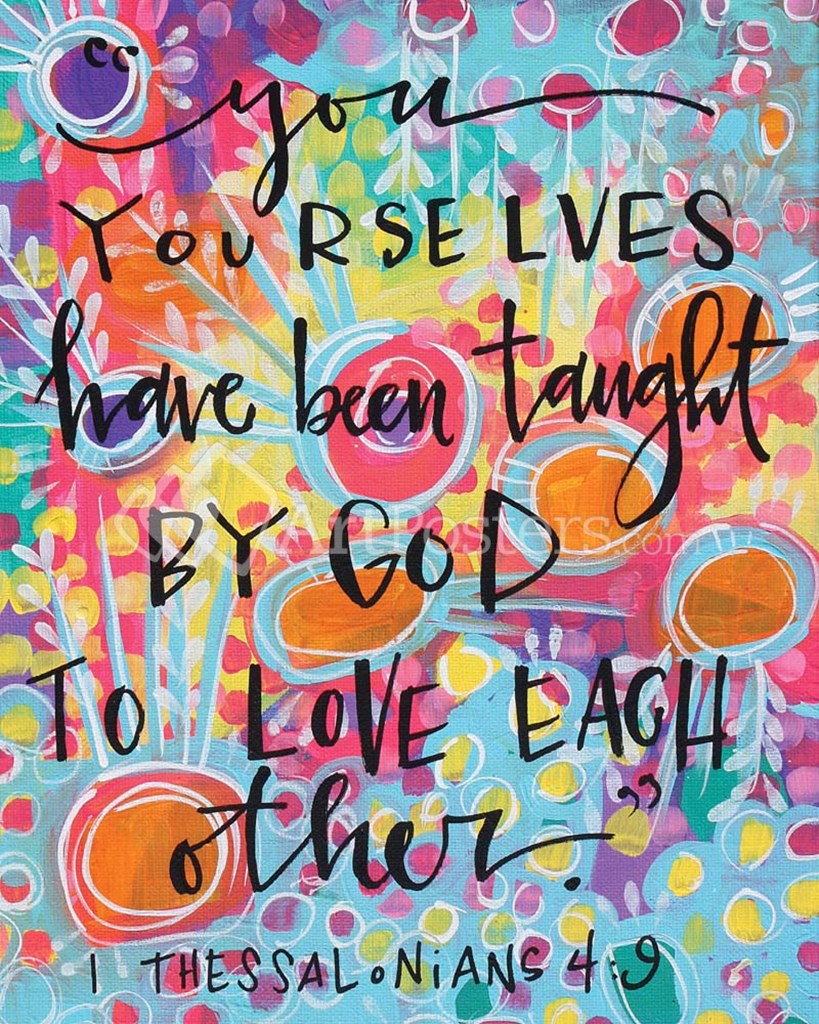 “you
YOURSELVES
have been taught
BY GOD
ArtPosters.com
TO LOVE EACH
other.”
1 THESSALONIANS 4:9